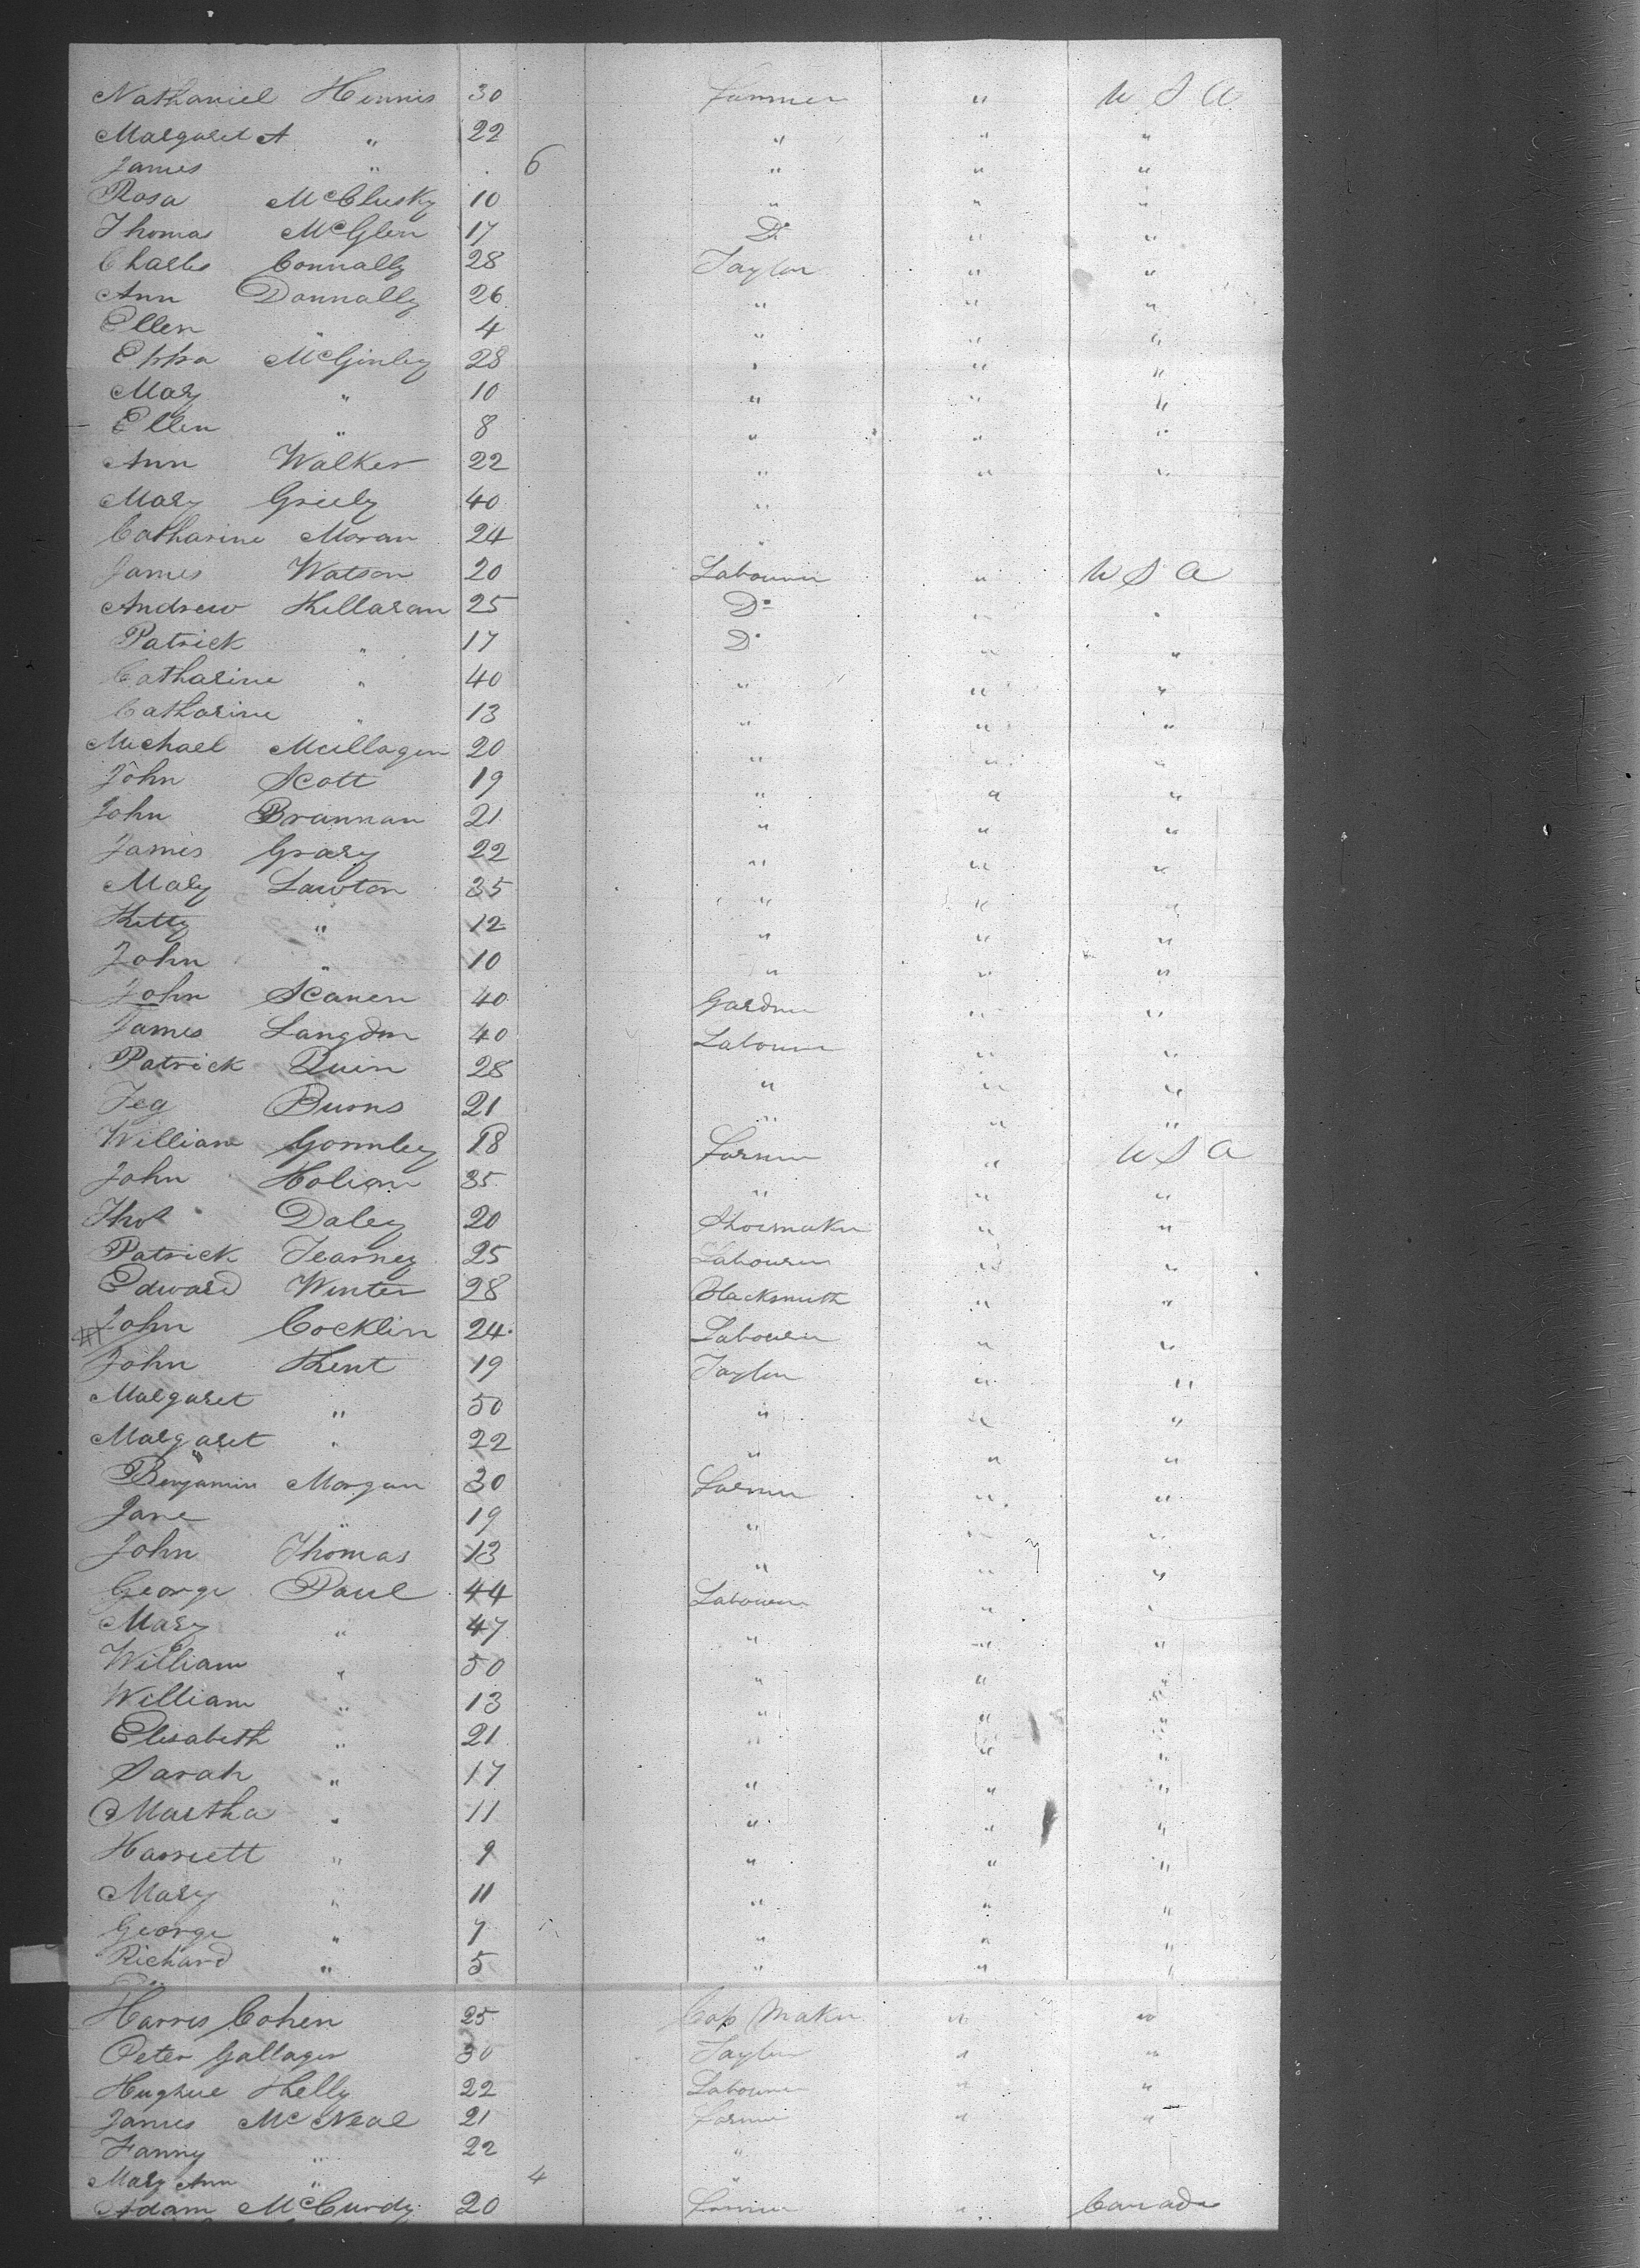 Nathaniel Hennis 30 Farmer " U S A
Margaret A " 22 " " "
James " 6 " " "
Rosa McClusky 10 " " "
Thomas McGlen 17 Do " "
Charles Connally 28 Taylor " "
Ann Donnally 26 " " "
Ellen " 4 " " "
McGinley 28 " " "
Mary " 10 " " "
Ellen " 8 " " "
Ann Walker 22 " " "
Mary Griely 40 "
Catharine Moran 24 "
James Watson 20 Labourer " U S A
Andrew Killaran 25 Do " "
Patrick " 17 Do " "
Catharine " 40 " " "
Catharine " 13 " " "
Michael Mullagen 20 " " "
John Scott 19 " " "
John Brannan 21 " " "
James Grary 22 " " "
Mary Lawton 35 " " "
Kitty " 12 " " "
John " 10 " " "
John Scanen 40 Gardner " "
James Langdon 40 Labourer " "
Patrick Quin 28 " " "
Burns 21 " " "
William Gormley 18 Farmer " U S A
John Holian 35 " " "
Thos Daley 20 Shoemaker " "
Patrick Tearney 25 Labourer " "
Edward Winter 28 Blacksmith " "
John Cocklin 24 Labourer " "
John Kent 19 Taylor " "
Margaret " 50 " " "
Margaret " 22 " " "
Benjamin Morgan 30 Farmer " "
Jane " 19 " " "
John Thomas 13 " " "
George Paul 44 Labourer " "
Mary " 47 " " "
William " 50 " " "
William " 13 " " "
Elisabeth " 21 " " "
Sarah " 17 " " "
Martha " 11 " " "
Harriett " 9 " " "
Mary " 11 " " "
George " 7 " " "
Richard " 5 " " "
Harris Cohen 25 Cap Maker " "
Peter Gallager 30 Taylor " "
Hughue Kelly 22 Labourer " "
James McNeal 21 Farmer " "
Fanny " 22 "
Mary Ann " 4 "
Adam McCurdy 20 Farmer " Canada